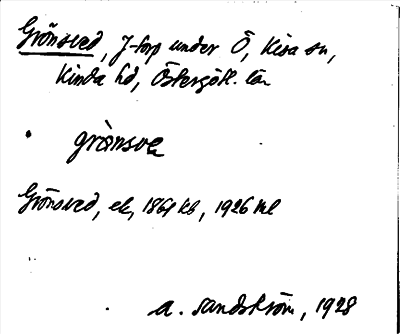 Grönsved, J-torp under Ö, Kisa sn,
Kinda hd, Östergötl. län
grò̀nsve
Grönsved, ek, 1864 kb, 1926 ml
A. Sandström, 1928